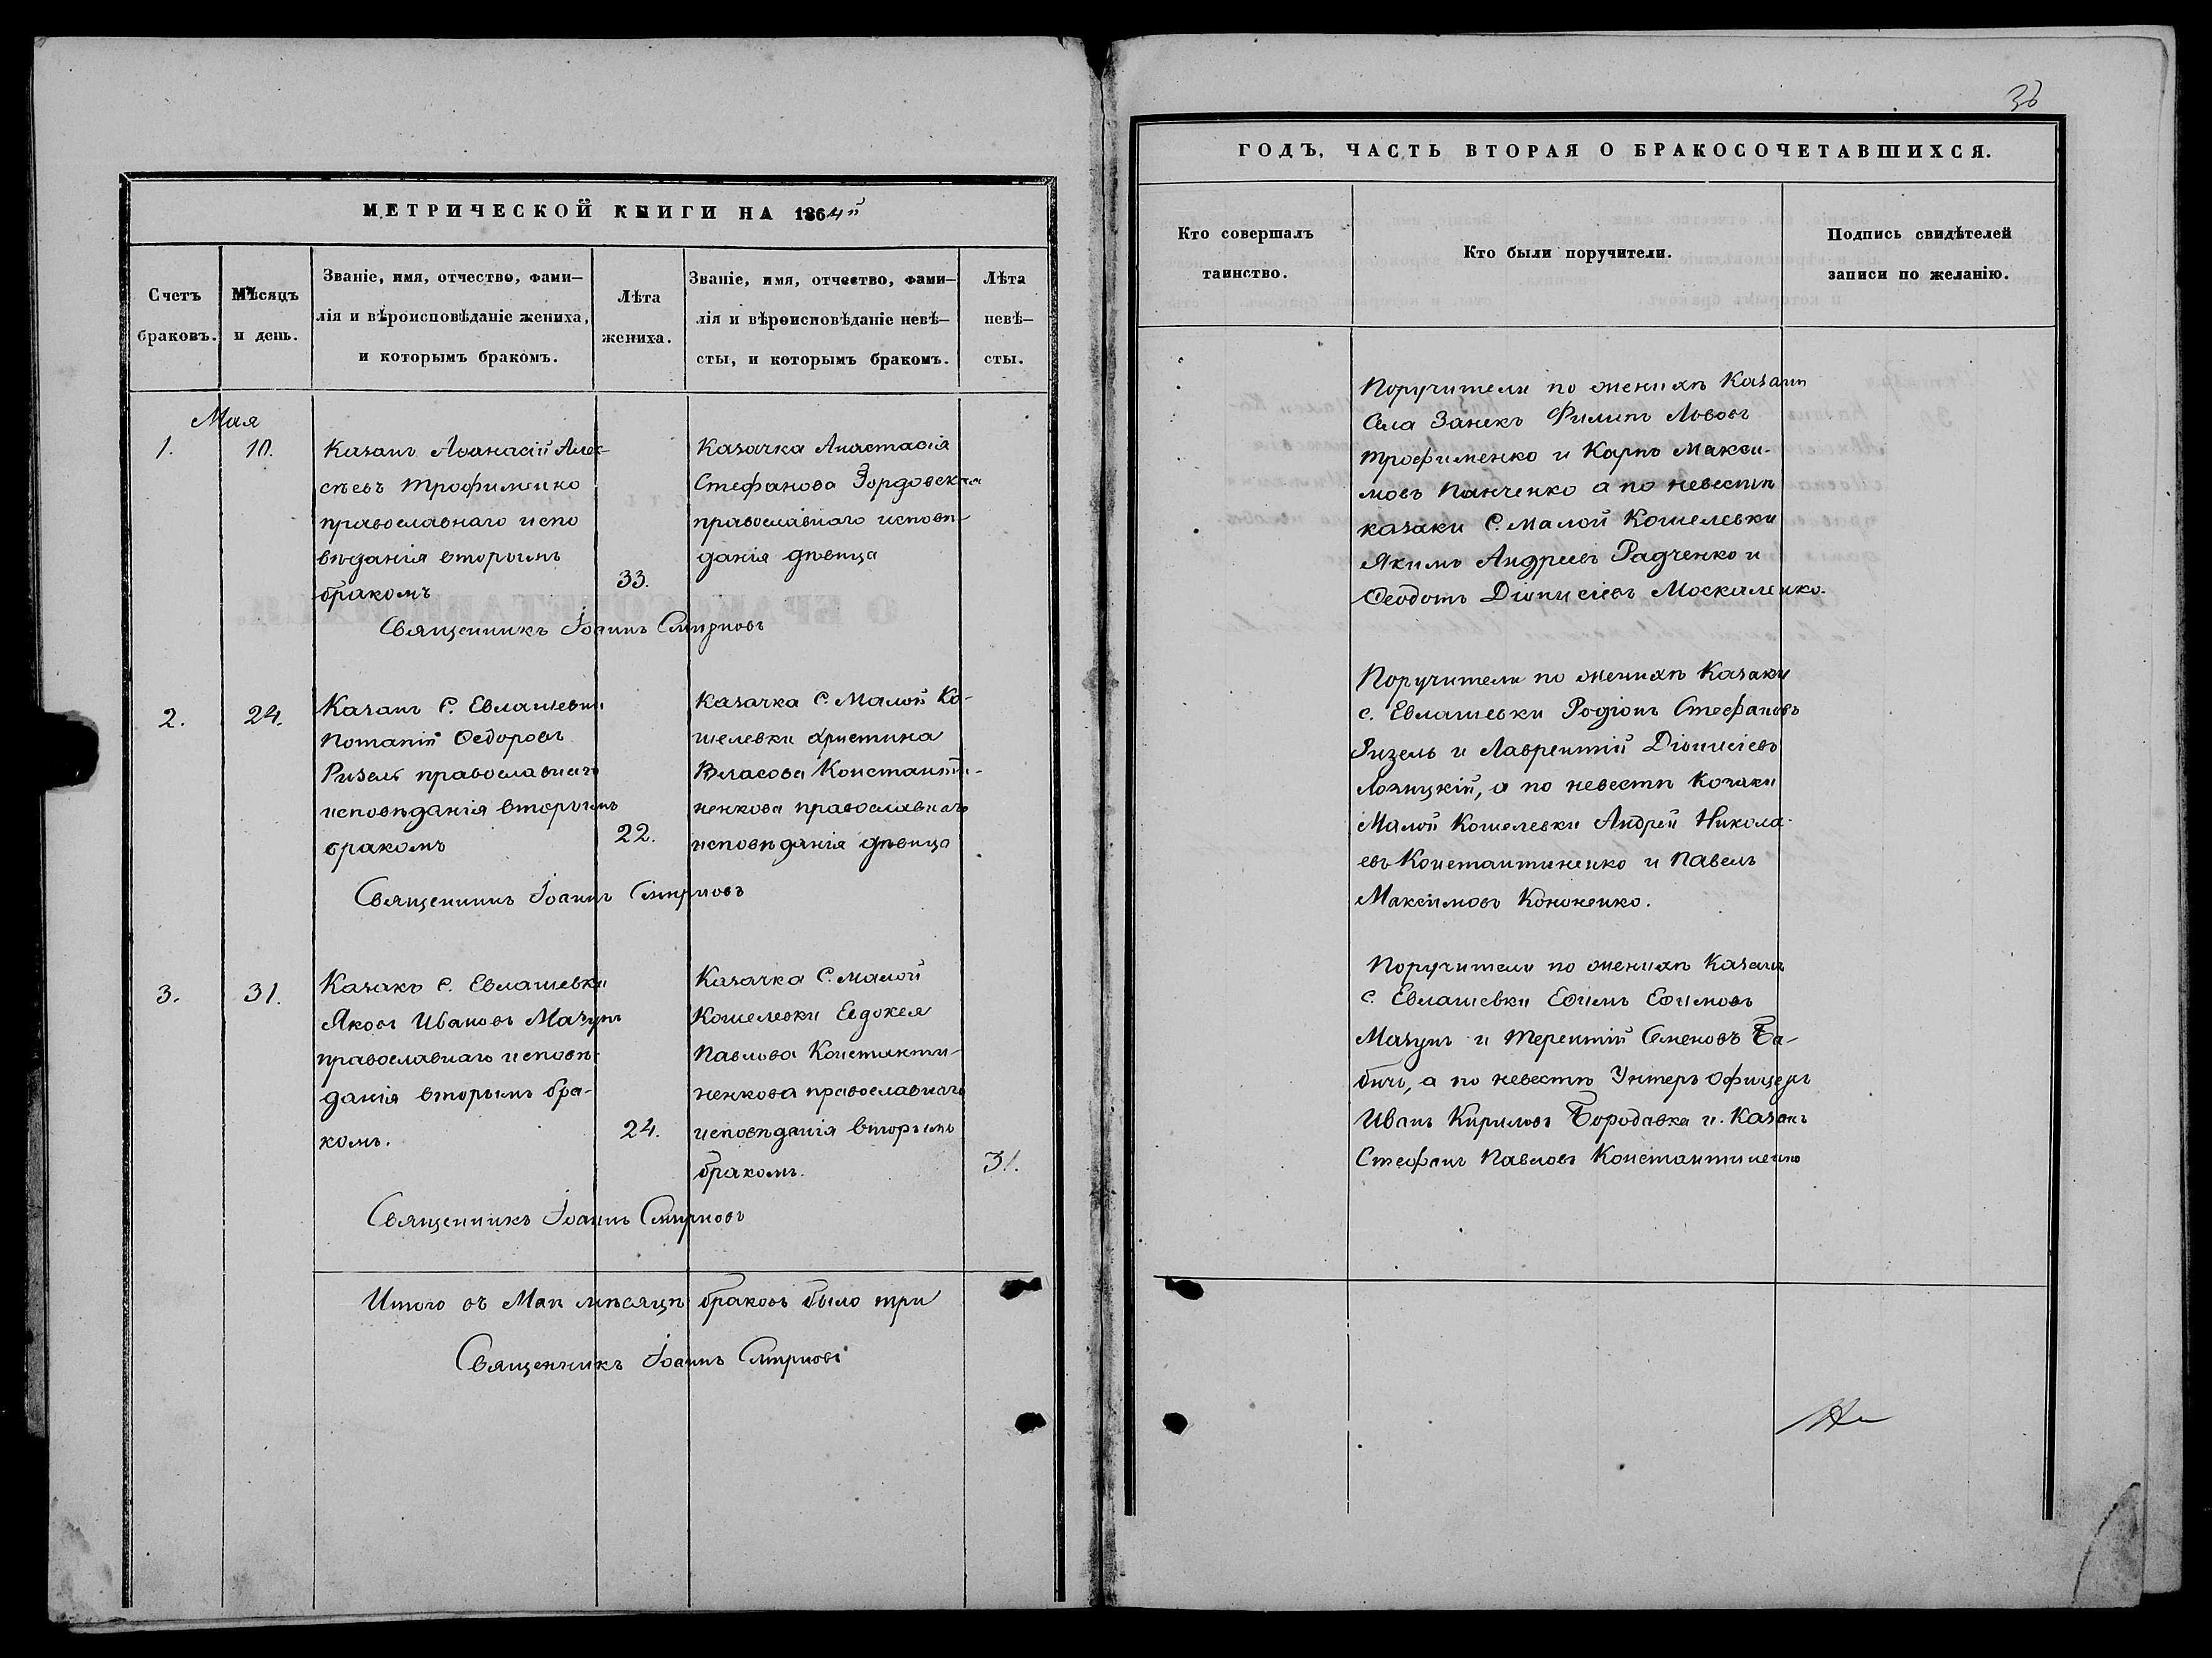 МЕТРИЧЕСКОЙ КНИГИ НА 1864й
Счетъ браковъ.
Мѣсяцъ и день.
Званіе, имя, отчество, фами-
лія и вѣроисповѣданіе жениха,
и которымъ бракомъ.
Лѣта жениха.
Званіе, имя, отчество, фами-
лія и вѣроисповѣданіе невѣ-
сты, и которымъ бракомъ.
Лѣта невѣ-
сты.
Мая
1.
10.
Казакъ Аѳанасій Алек-
сѣевъ Трофименко
православнаго испо
вѣданія вторымъ
бракомъ
33.
Казачка Анастасія
Стефанова
православнаго исповѣ-
данія дѣвица
Священникъ Іоаннъ Смирновъ
2.
24.
Казакъ С. Евлашевки
Потапій Ѳедоровъ
Ризель православнаго
исповѣданія вторымъ
бракомъ
22.
Казачка С. Малой Ко-
шелевки Христина
Власова Константи-
ненкова православнаго
исповѣданія дѣвица
Священникъ Іоаннъ Смирновъ
3.
31.
Казакъ С. Евлашевки
Яковъ Ивановъ Мазунъ
православнаго исповѣ-
данія вторымъ бра-
комъ.
24.
Казачка С. Малой
Кошелевки Евдокея
Павлова Константи-
ненкова православнаго
исповѣданія вторымъ
бракомъ.
31.
Священникъ Іоаннъ Смирновъ
Итого въ Маѣ мѣсяцѣ браковъ было три
Священникъ Іоаннъ Смирновъ
36
ГОДЪ, ЧАСТЬ ВТОРАЯ О БРАКОСОЧЕТАВШИХСЯ.
Кто совершалъ
таинство.
Кто были поручители.
Подпись свидѣтелей
записи по желанію.
Поручители по женихѣ Казаки
Села Занекъ Филипъ Львовъ
Трофименко и Карпъ Макси-
мовъ Панченко а по невестѣ
казаки С. Малой Кошелевки
Якимъ Андреевъ Радченко и
Ѳеодотъ Діонисіевъ Москаленко.
Поручители по женихѣ Казаки
с. Евлашевки Родіонъ Стефановъ
Ризель и Лаврентій Діонисіевъ
Лозицкій, а по невестѣ Козаки
Малой Кошелевки Андрей Никола-
евъ Константиненко и Павелъ
Максимовъ Кононенко.
Поручители по женихѣ Казаки
с. Евлашевки Ефимъ Ефимовъ
Мазунъ и Терентій Семеновъ Ба-
бичъ, а по невестѣ Унтеръ Офицеръ
Иванъ Кириловъ Бородавка и Казакъ
Стефанъ Павловъ Константиненко